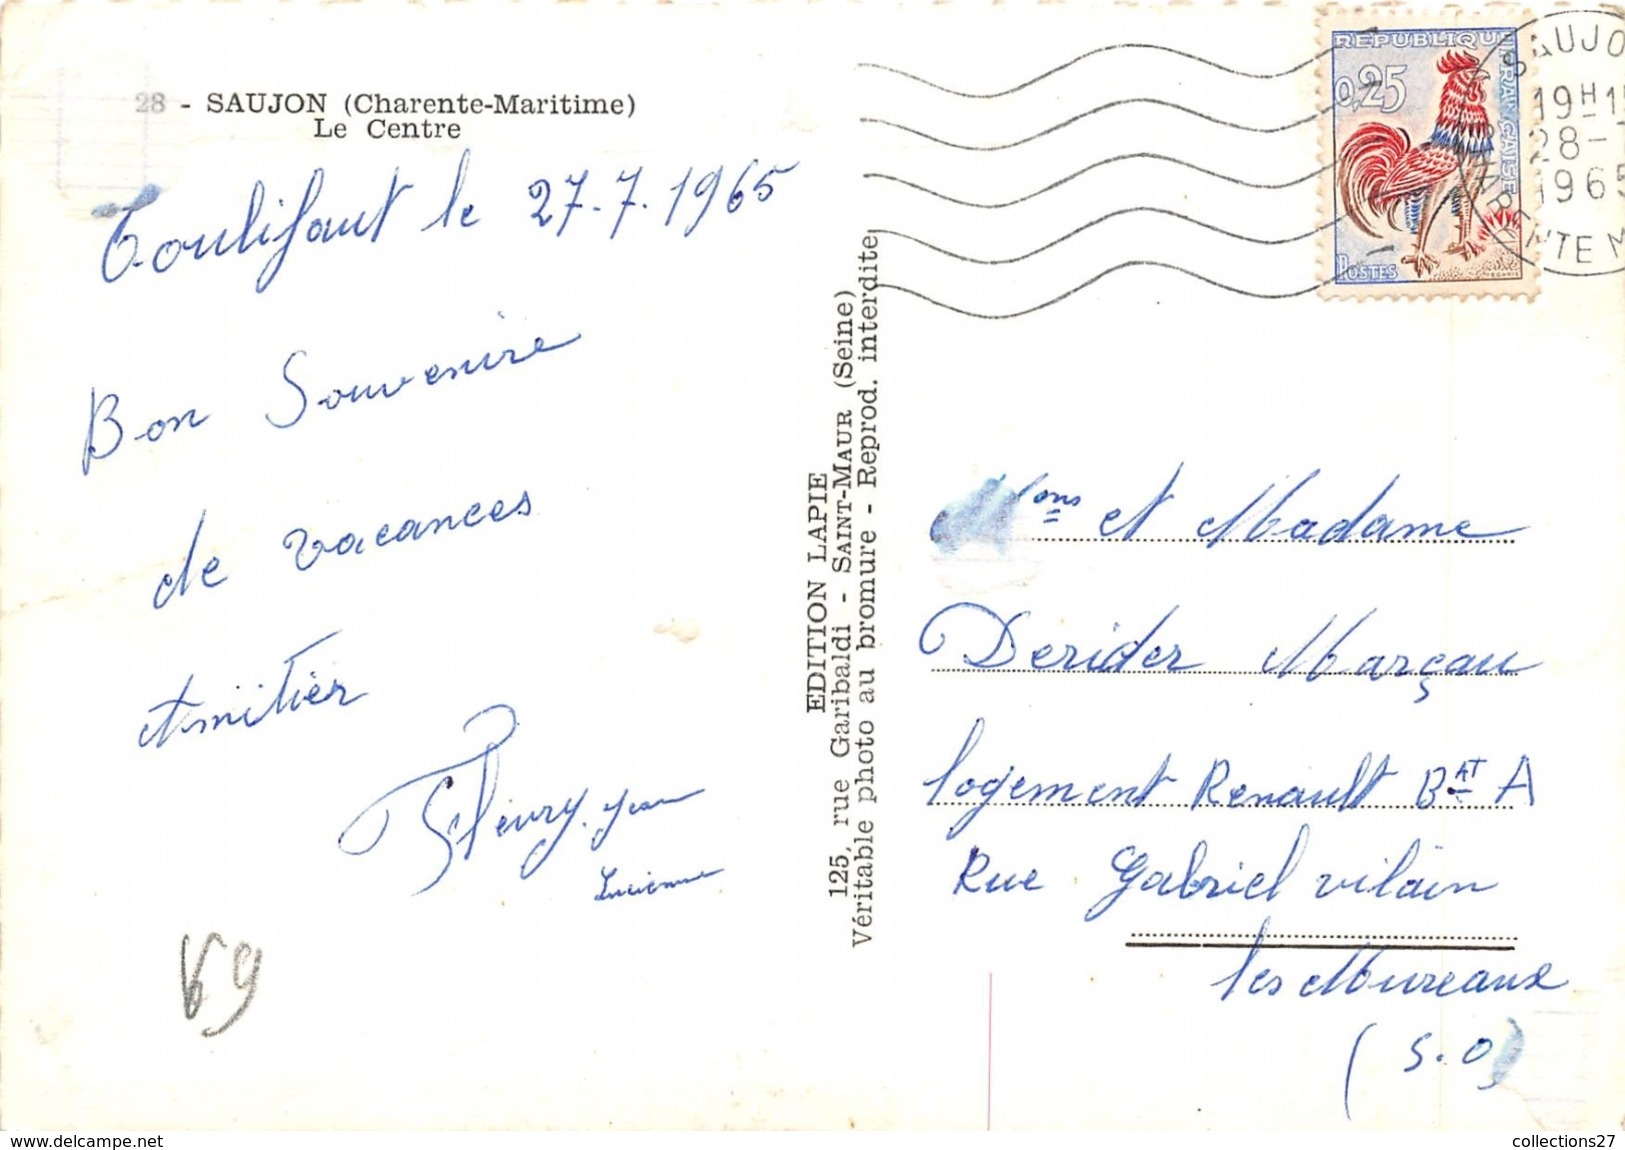 28 - SAUJON (Charente-Maritime)
Le Centre
Toulifaut le 27.7.1965
Bon Souvenire
de vacances
Amitier
Fleury. Jean
Lucienne
69
EDITION LAPIE
125, rue Garibaldi - SAINT-MAUR (Seine)
Véritable photo au bromure - Reprod. interdite
REPUBLIQUE FRANÇAISE
0,25
POSTES
SAUJO
19H1
28-
1965
CHARENTE M
Mons et Madame
Derider Marçau
logement Renault BAT A
Rue Gabriel vilain
les Mureaux
(S.O)
collections27